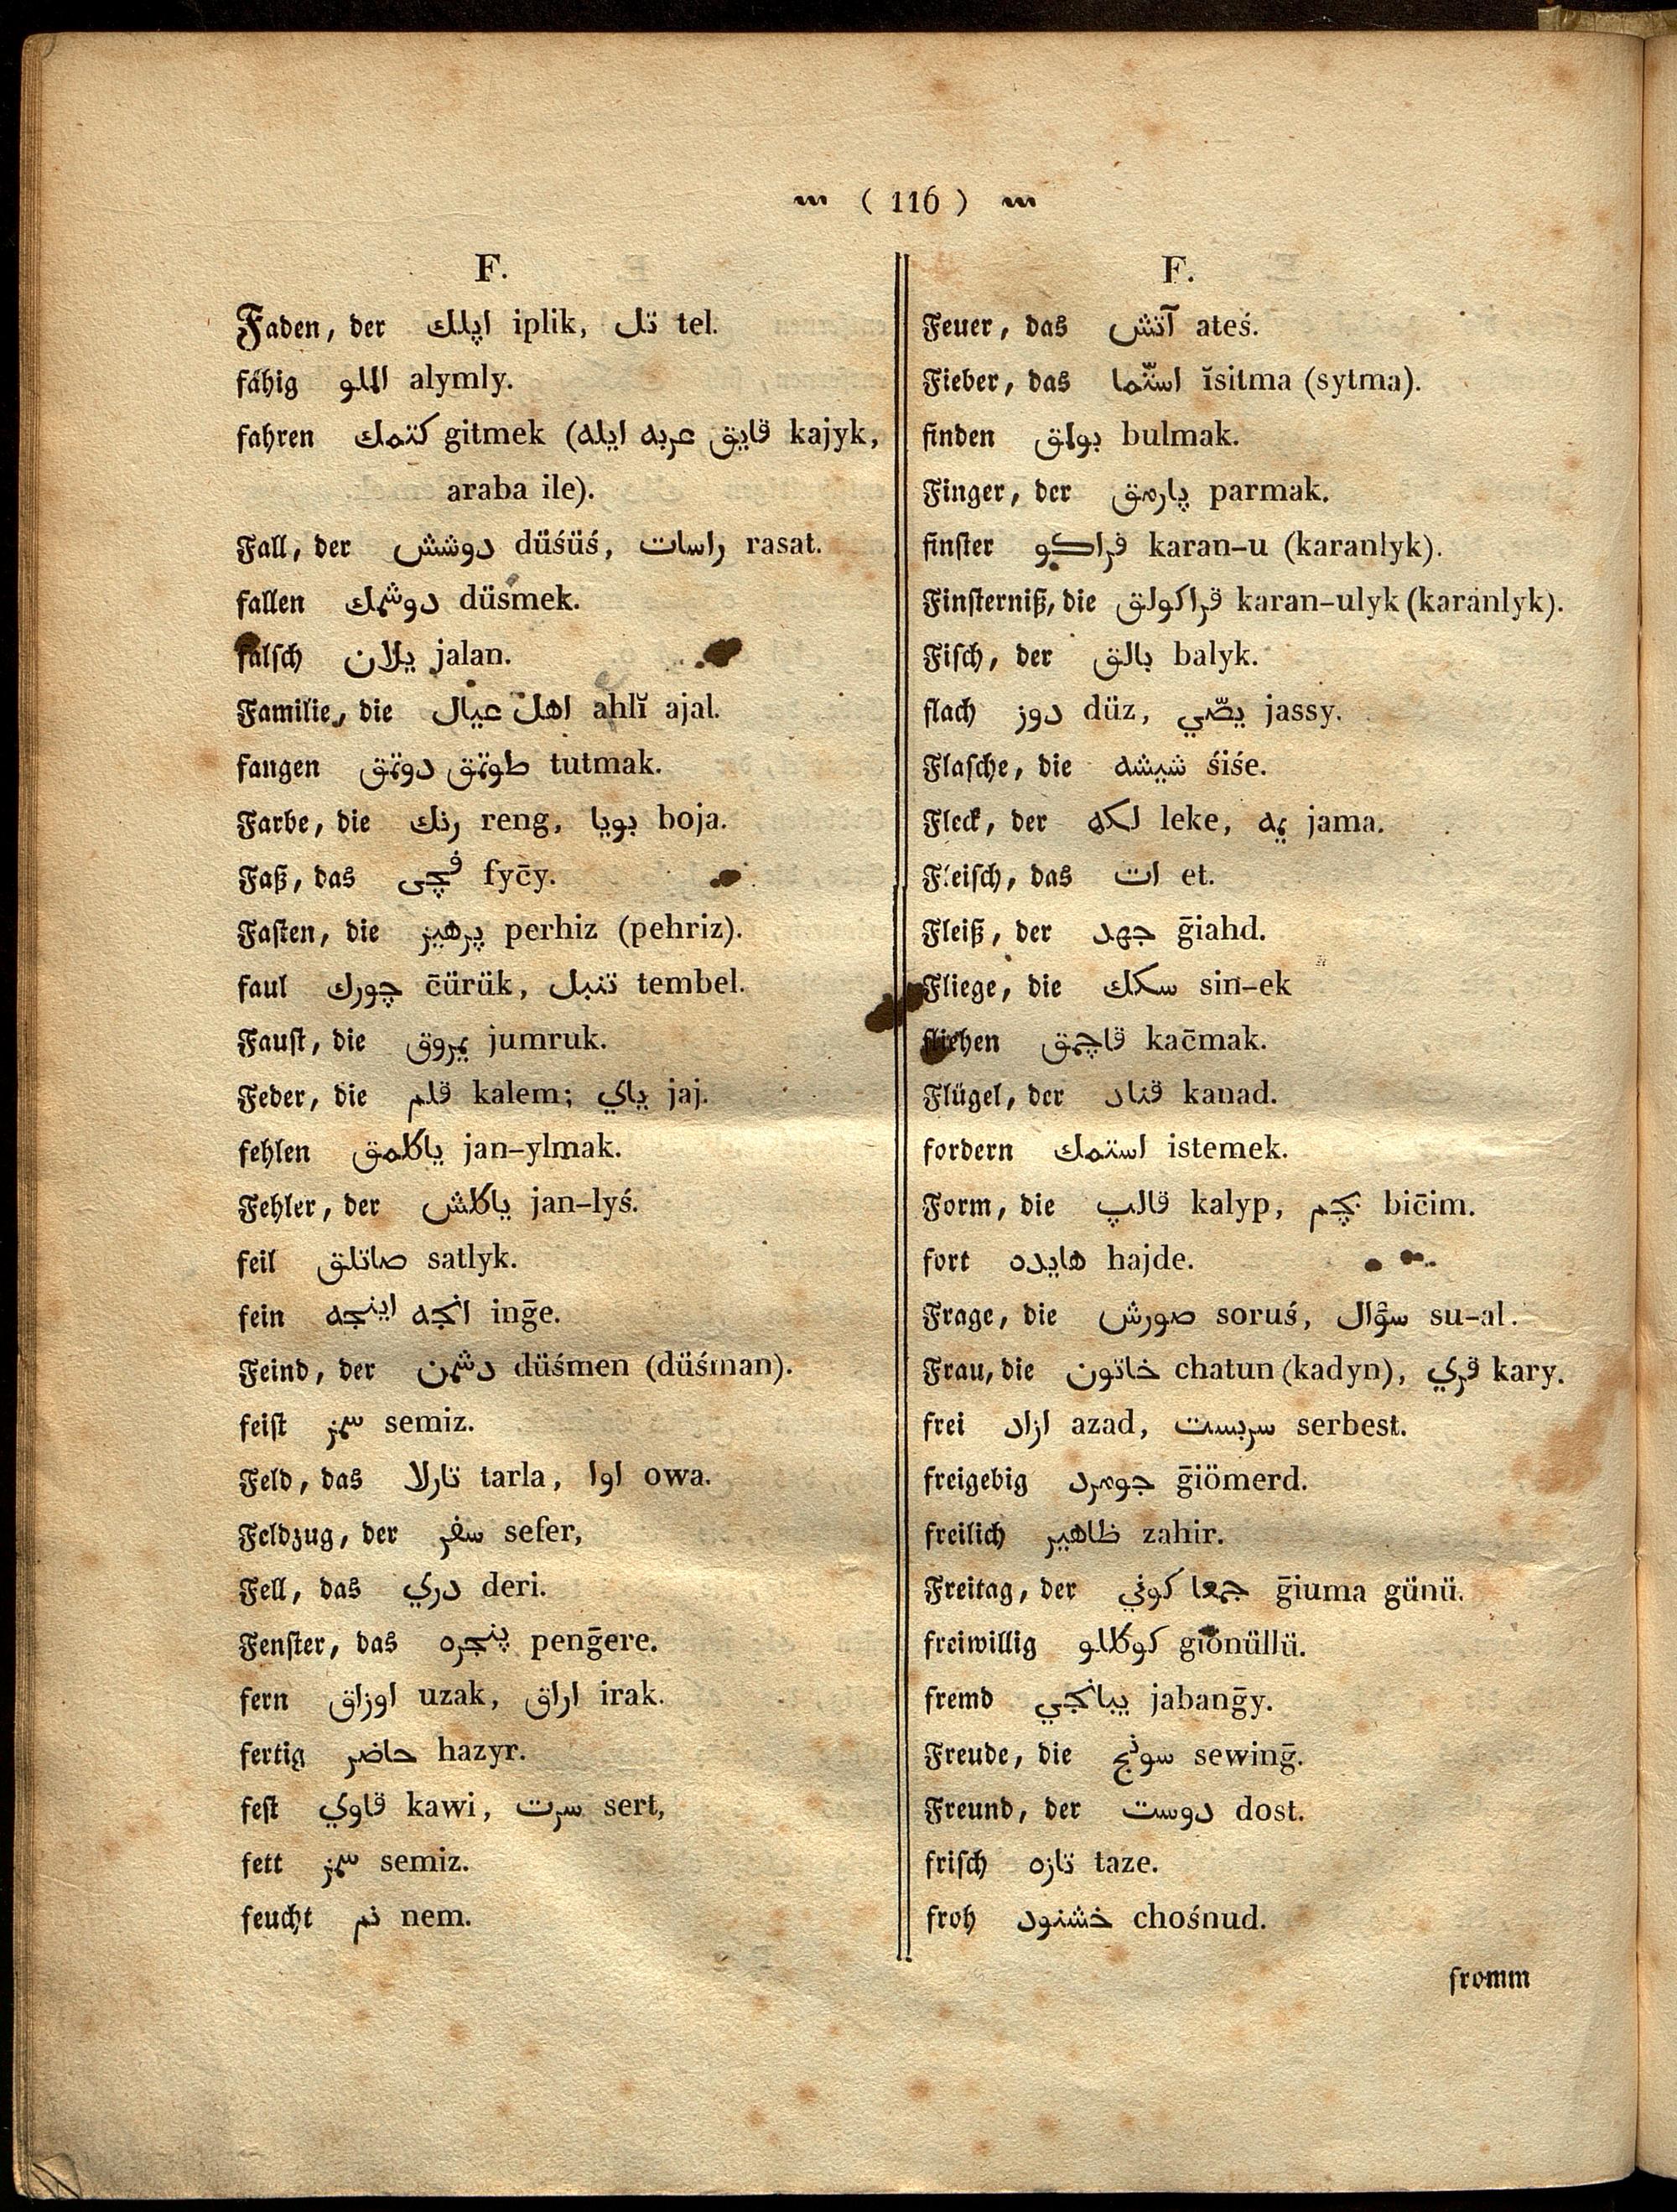 ( 116 )
F.
Faden, der اپلك iplik, تل tel.
fähig الملو alymly.
fahren كتمك gitmek (قايق عربه ايله kajyk,
araba ile).
Fall, der دوشش düśüś, راسات rasat.
fallen دوشمك düśmek.
falsch يلان jalan.
Familie, die اهل عيال ahlĭ ajal.
fangen طوتمق دوتمق tutmak.
Farbe, die رنك reng, بويا boja.
Faß, das فچى fyc̄y.
Fasten, die پرهيز perhiz (pehriz).
faul چورك c̄ürük, تنبل tembel.
Faust, die يمروق jumruk.
Feder, die قلم kalem; ياي jaj.
fehlen ياكلمق jan-ylmak.
Fehler, der ياكلش jan-lyś.
feil صاتلق satlyk.
fein انجه اينجه inḡe.
Feind, der دشمن düśmen (düśman).
feist سمز semiz.
Feld, das تارلا tarla, اوا owa.
Feldzug, der سفر sefer,
Fell, das دري deri.
Fenster, das پنجره penḡere.
fern اوزاق uzak, اراق irak.
fertig حاضر hazyr.
fest قاوي kawi, سرت sert,
fett سمز semiz.
feucht نم nem.
F.
Feuer, das آتش ateś.
Fieber, das استّما ĭsitma (sytma).
finden بولمق bulmak.
Finger, der پارمق parmak.
finster قراكو karan-u (karanlyk).
Finsterniß, die قراكولق karan-ulyk (karanlyk).
Fisch, der بالق balyk.
flach دوز düz, يصّي jassy.
Flasche, die شيشه śiśe.
Fleck, der لكه leke, يمه jama.
Fleisch, das ات et.
Fleiß, der جهد ḡiahd.
Fliege, die سكك sin-ek
fliehen قاچمق kac̄mak.
Flügel, der قناد kanad.
fordern استمك istemek.
Form, die قالپ kalyp, بچم bic̄im.
fort هايده hajde.
Frage, die صورش soruś, سؤال su-al.
Frau, die خاتون chatun (kadyn), قري kary.
frei ازاد azad, سربست serbest.
freigebig جومرد ḡiömerd.
freilich ظاهير zahir.
Freitag, der جمعا كوني ḡiuma günü.
freiwillig كوكللو giönüllü.
fremd يبانجي jabanḡy.
Freude, die سونج sewinḡ.
Freund, der دوست dost.
frisch تازه taze.
froh خشنود chośnud.
fromm